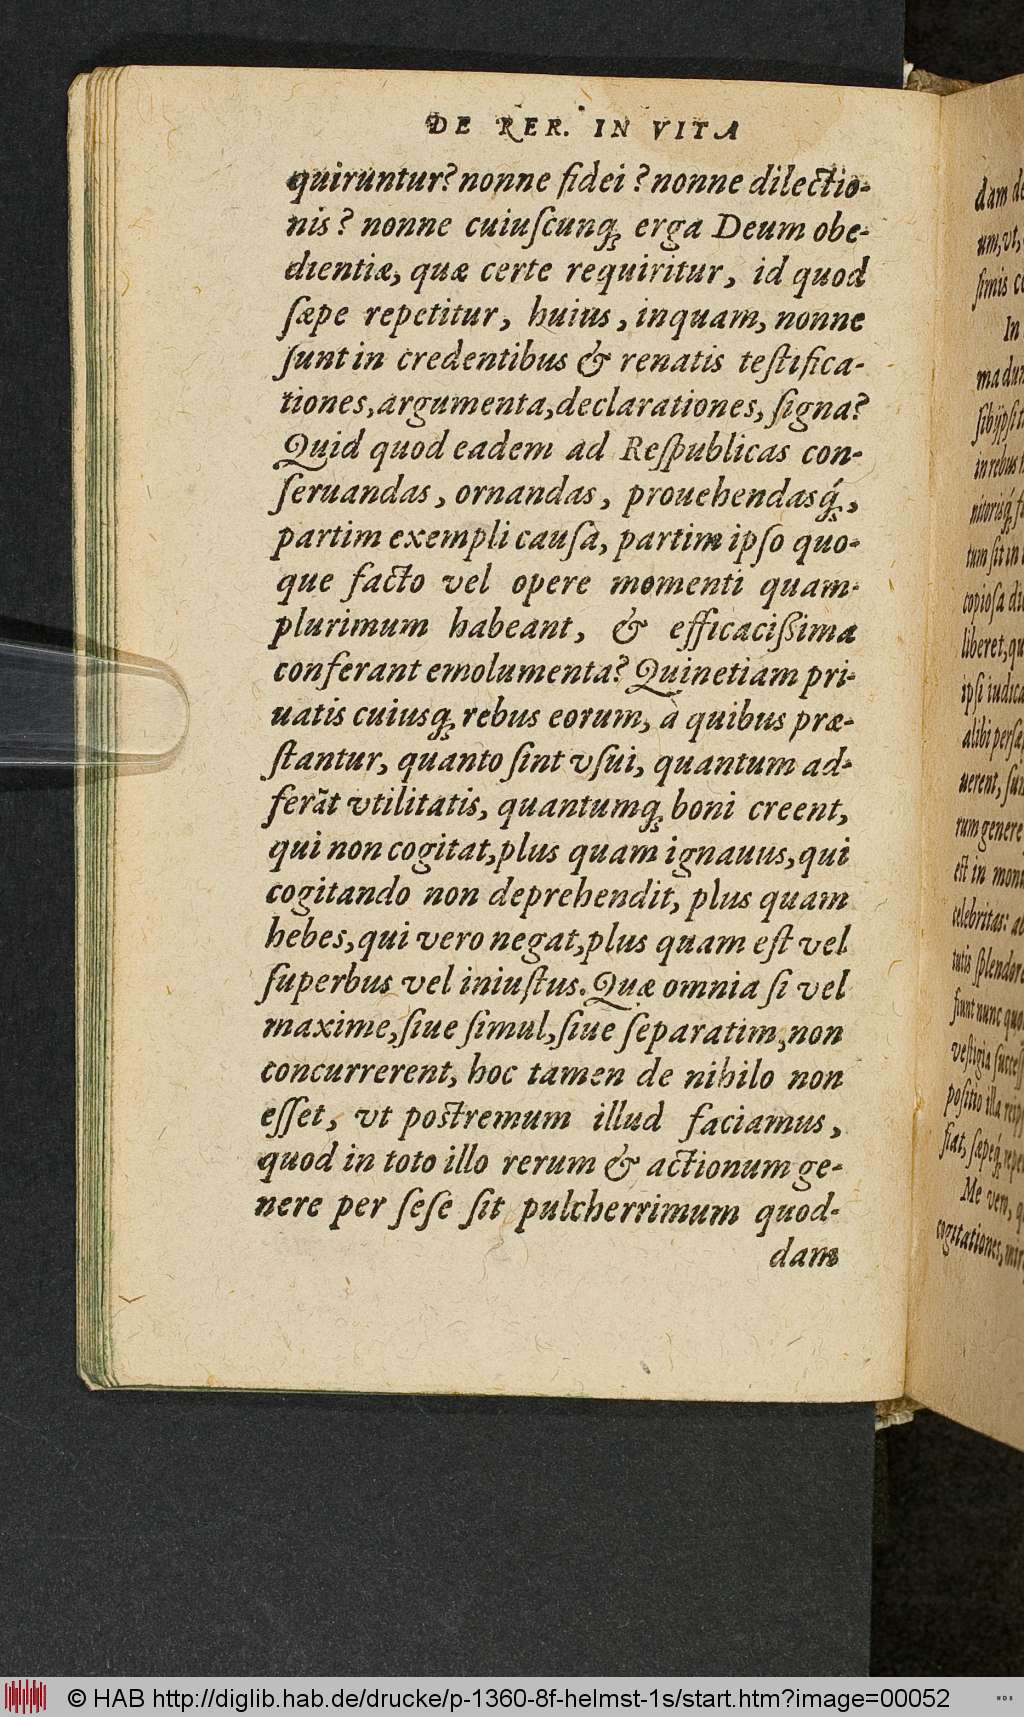 DE RER. IN VITA
quiruntur? nonne fidei? nonne dilectio-
nis? nonne cuiuſcunqꝫ erga Deum obe-
dientiæ, quæ certe requiritur, id quod
ſæpe repetitur, huius, inquam, nonne
ſunt in credentibus & renatis teſtifica-
tiones, argumenta, declarationes, ſigna?
Quid quod eadem ad Reſpublicas con-
ſeruandas, ornandas, prouehendasq́ꝫ,
partim exempli cauſa, partim ipſo quo-
que facto vel opere momenti quam-
plurimum habeant, & efficacißima
conferant emolumenta? Quinetiam pri-
uatis cuiusqꝫ rebus eorum, à quibus præ-
ſtantur, quanto ſint vſui, quantum ad-
ferāt vtilitatis, quantumqꝫ boni creent,
qui non cogitat, plus quam ignauus, qui
cogitando non deprehendit, plus quam
hebes, qui vero negat, plus quam eſt vel
ſuperbus vel iniuſtus. Quæ omnia ſi vel
maxime, ſiue ſimul, ſiue ſeparatim, non
concurrerent, hoc tamen de nihilo non
eſſet, vt poſtremum illud faciamus,
quod in toto illo rerum & actionum ge-
nere per ſeſe ſit pulcherrimum quod-
dam
dam de
um, vt,
ſimis
In
ma
in rebus
tum ſit in
copioſa
liberet,
ipſi
alibi
uerent,
rum genere
eſt in
celebritas:
tutis ſplendore
fiunt nunc
veſtigia
poſitio illa
fiat, ſæpeq́ꝫ
Me vero,
cogitationes,
© HAB http://diglib.hab.de/drucke/p-1360-8f-helmst-1s/start.htm?image=00052